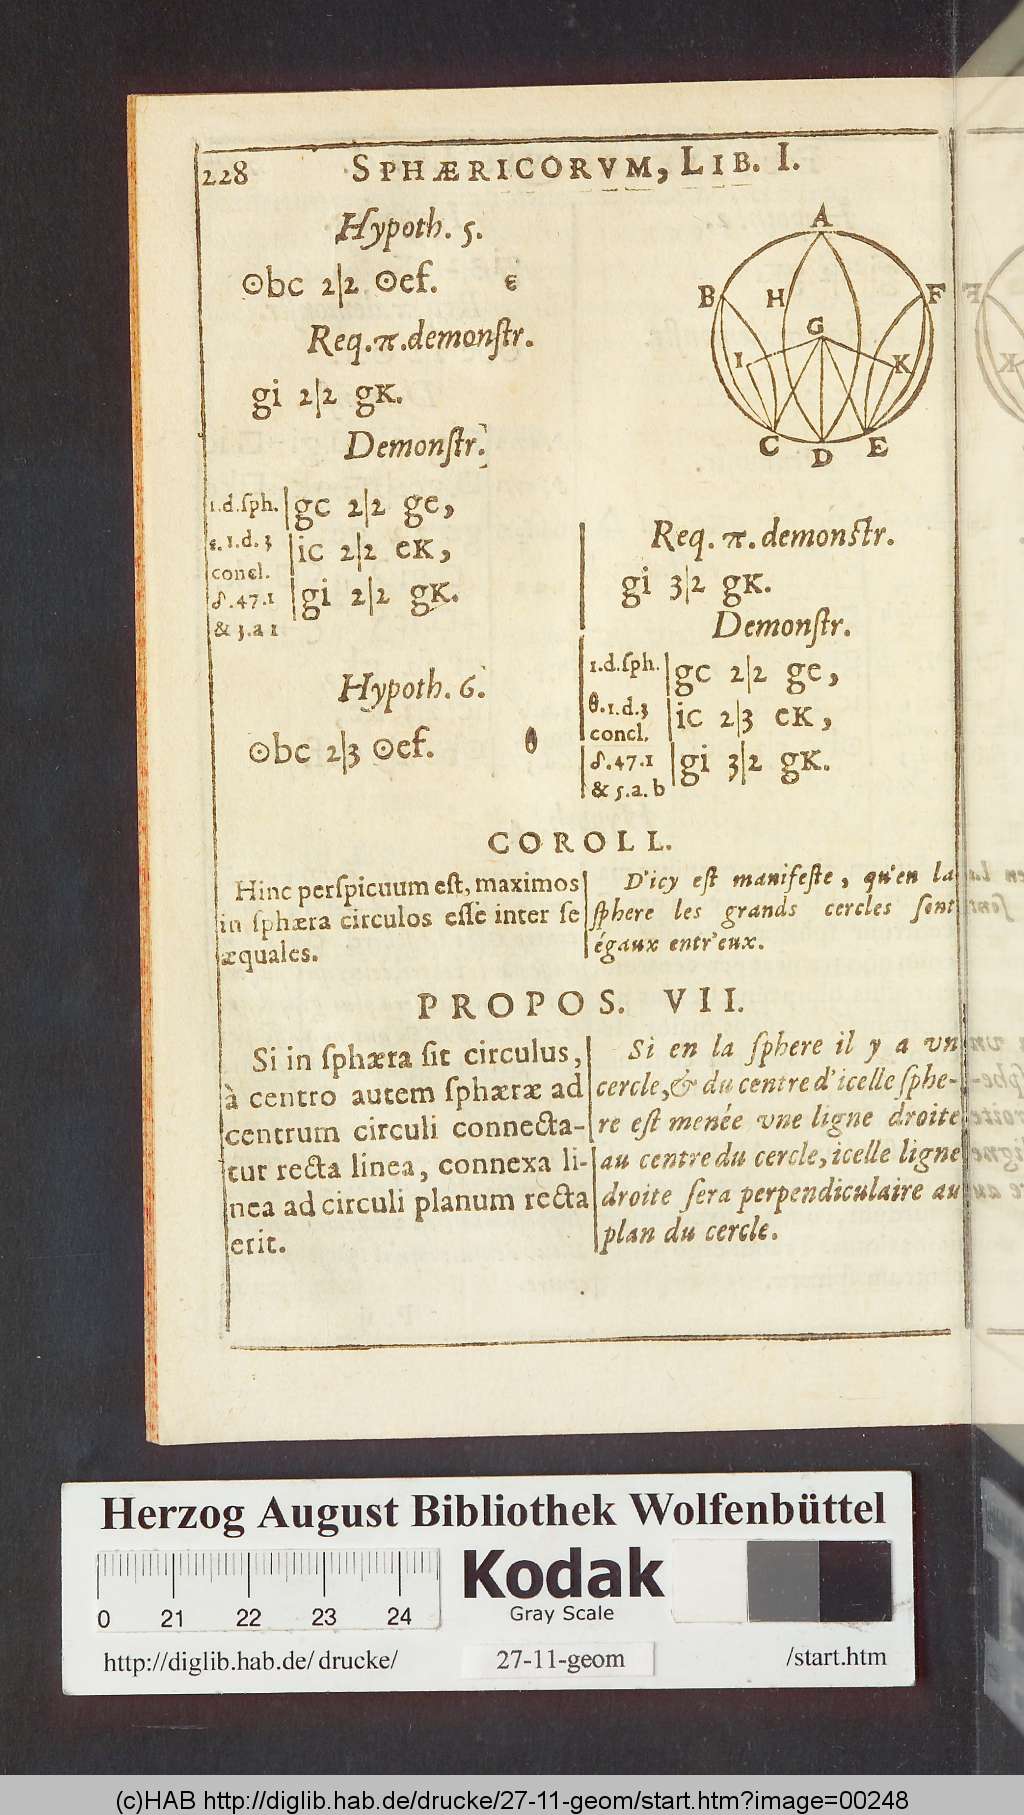 228 SPHÆRICORVM, LIB. I.
Hypoth. 5.
⊙bc 2|2 ⊙ef. ε
Req. π. demonſtr.
gi 2|2 gK.
Demonſtr.
1.d.ſph. | gc 2|2 ge,
ε. 1.d.3 | ic 2|2 eK,
concl.
δ.47.1 | gi 2|2 gK.
& 3.a 1
Hypoth. 6.
⊙bc 2|3 ⊙ef. θ
A
B H F
G
I K
C D E
Req. π. demonſtr.
gi 3|2 gK.
Demonſtr.
1.d.ſph. | gc 2|2 ge,
θ.1.d.3 | ic 2|3 eK,
concl.
δ.47.1 | gi 3|2 gK.
& 5.a.b
COROLL.
Hinc perſpicuum eſt, maximos
in ſphæra circulos eſſe inter ſe
æquales.
D'icy eſt manifeſte, qu'en la
ſphere les grands cercles ſont
égaux entr'eux.
PROPOS. VII.
Si in ſphæra ſit circulus,
à centro autem ſphæræ ad
centrum circuli connecta-
tur recta linea, connexa li-
nea ad circuli planum recta
erit.
Si en la ſphere il y a vn
cercle, & du centre d'icelle ſphe-
re eſt menée vne ligne droite
au centre du cercle, icelle ligne
droite ſera perpendiculaire au
plan du cercle.
Herzog August Bibliothek Wolfenbüttel
Kodak
Gray Scale
0 21 22 23 24
http://diglib.hab.de/drucke/ 27-11-geom /start.htm
(c)HAB http://diglib.hab.de/drucke/27-11-geom/start.htm?image=00248